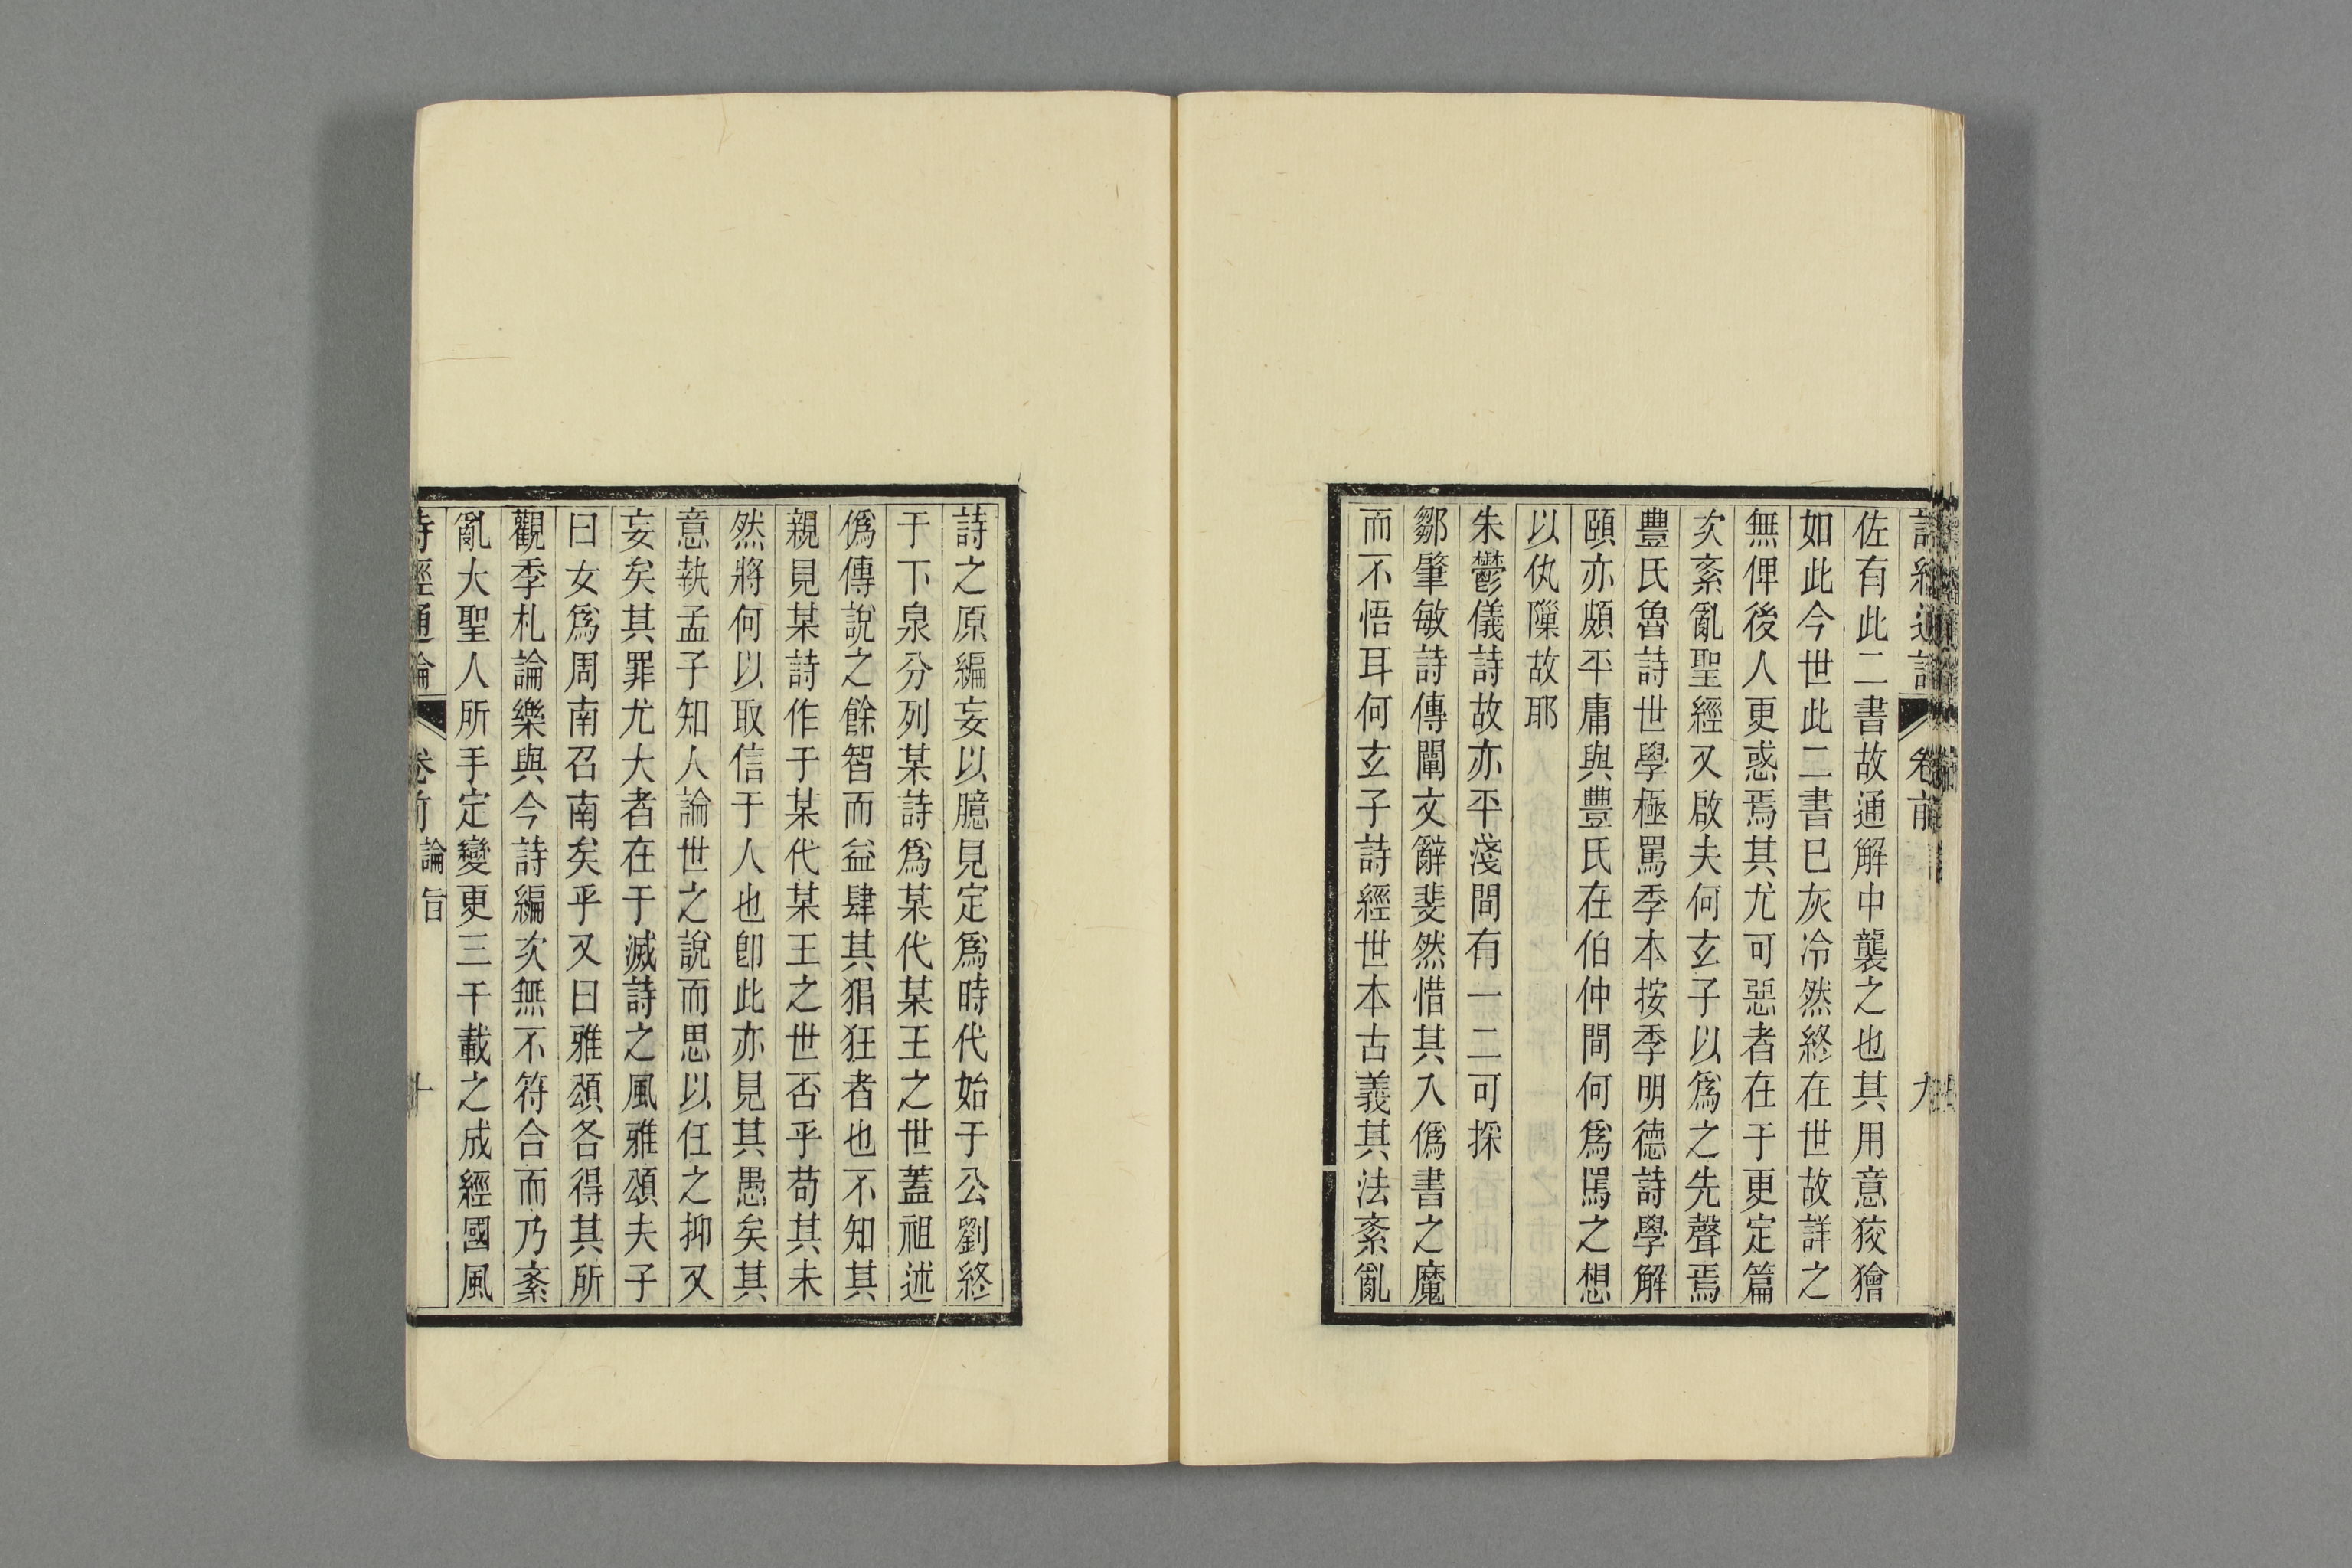 詩經通論 卷前 九
佐有此二書故通解中襲之也其用意狡獪
如此今世此二書已灰冷然終在世故詳之
無俾後人更惑焉其尤可惡者在于更定篇
次紊亂聖經又啟夫何玄子以爲之先聲焉
豐氏魯詩世學極罵季本按季明德詩學解
頤亦頗平庸與豐氏在伯仲間何爲罵之想
以仇隟故耶
朱鬱儀詩故亦平淺間有一二可採
鄒肇敏詩傳闡文辭斐然惜其入僞書之魔
而不悟耳何玄子詩經世本古義其法紊亂
詩之原編妄以臆見定爲時代始于公劉終
于下泉分列某詩爲某代某王之世蓋祖述
僞傳說之餘智而益肆其猖狂者也不知其
親見某詩作于某代某王之世否乎苟其未
然將何以取信于人也卽此亦見其愚矣其
意執孟子知人論世之說而思以任之抑又
妄矣其罪尤大者在于滅詩之風雅頌夫子
曰女爲周南召南矣乎又曰雅頌各得其所
觀季札論樂與今詩編次無不符合而乃紊
亂大聖人所手定變更三千載之成經國風
詩經通論 卷前 論旨 十